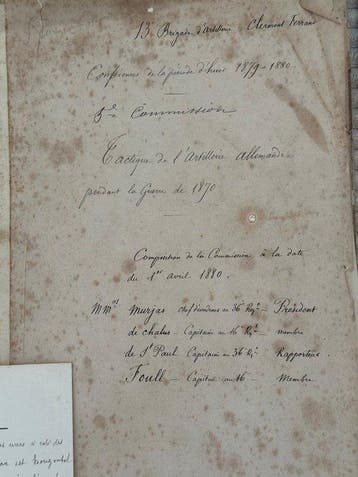 13e Brigade d'artillerie Clermont Ferrand
Conférences de la période d'hiver 1879-1880.
5e Commission
Tactique de l'Artillerie allemande
pendant la Guerre de 1870
Composition de la Commission à la date
du 1er avril 1880.
MMrs Murjas chef d'escadrons au 36 Rgt - Président
de chalus - Capitaine au 16 Rgt - membre
de St Paul Capitaine au 36 Rgt Rapporteur
Foull - Capitaine au 16 - Membre
est horizontal